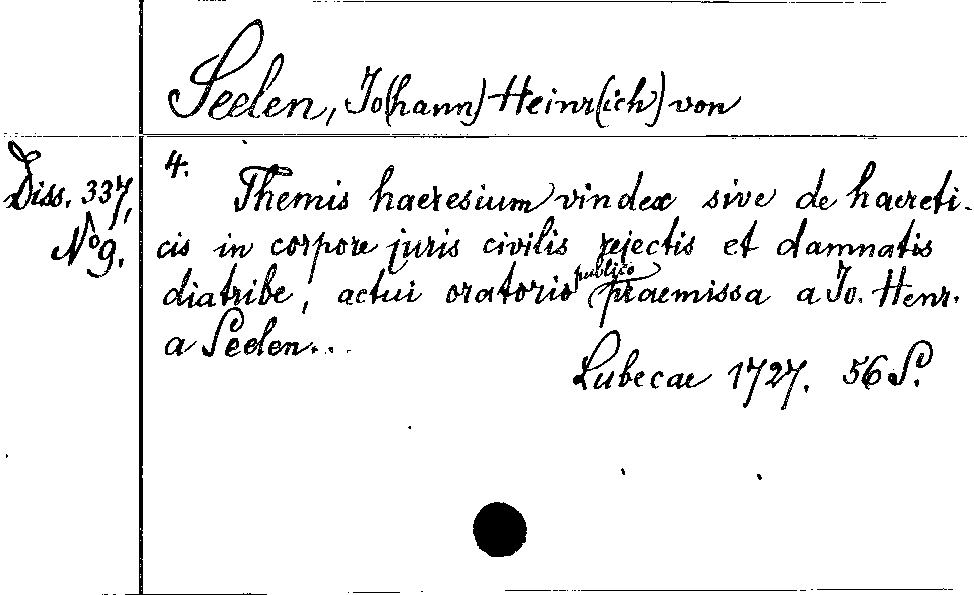 Seelen, Jo(hann) Heinr(ich) von
Diss. 337,
No 9.
4.
Themis haeresium vindex sive de haereti-
cis in corpore juris civilis rejectis et damnatis
diatribe, actui oratorio publico praemissa a Jo. Henr.
a Seelen...
Lubecae 1727. 56 S.